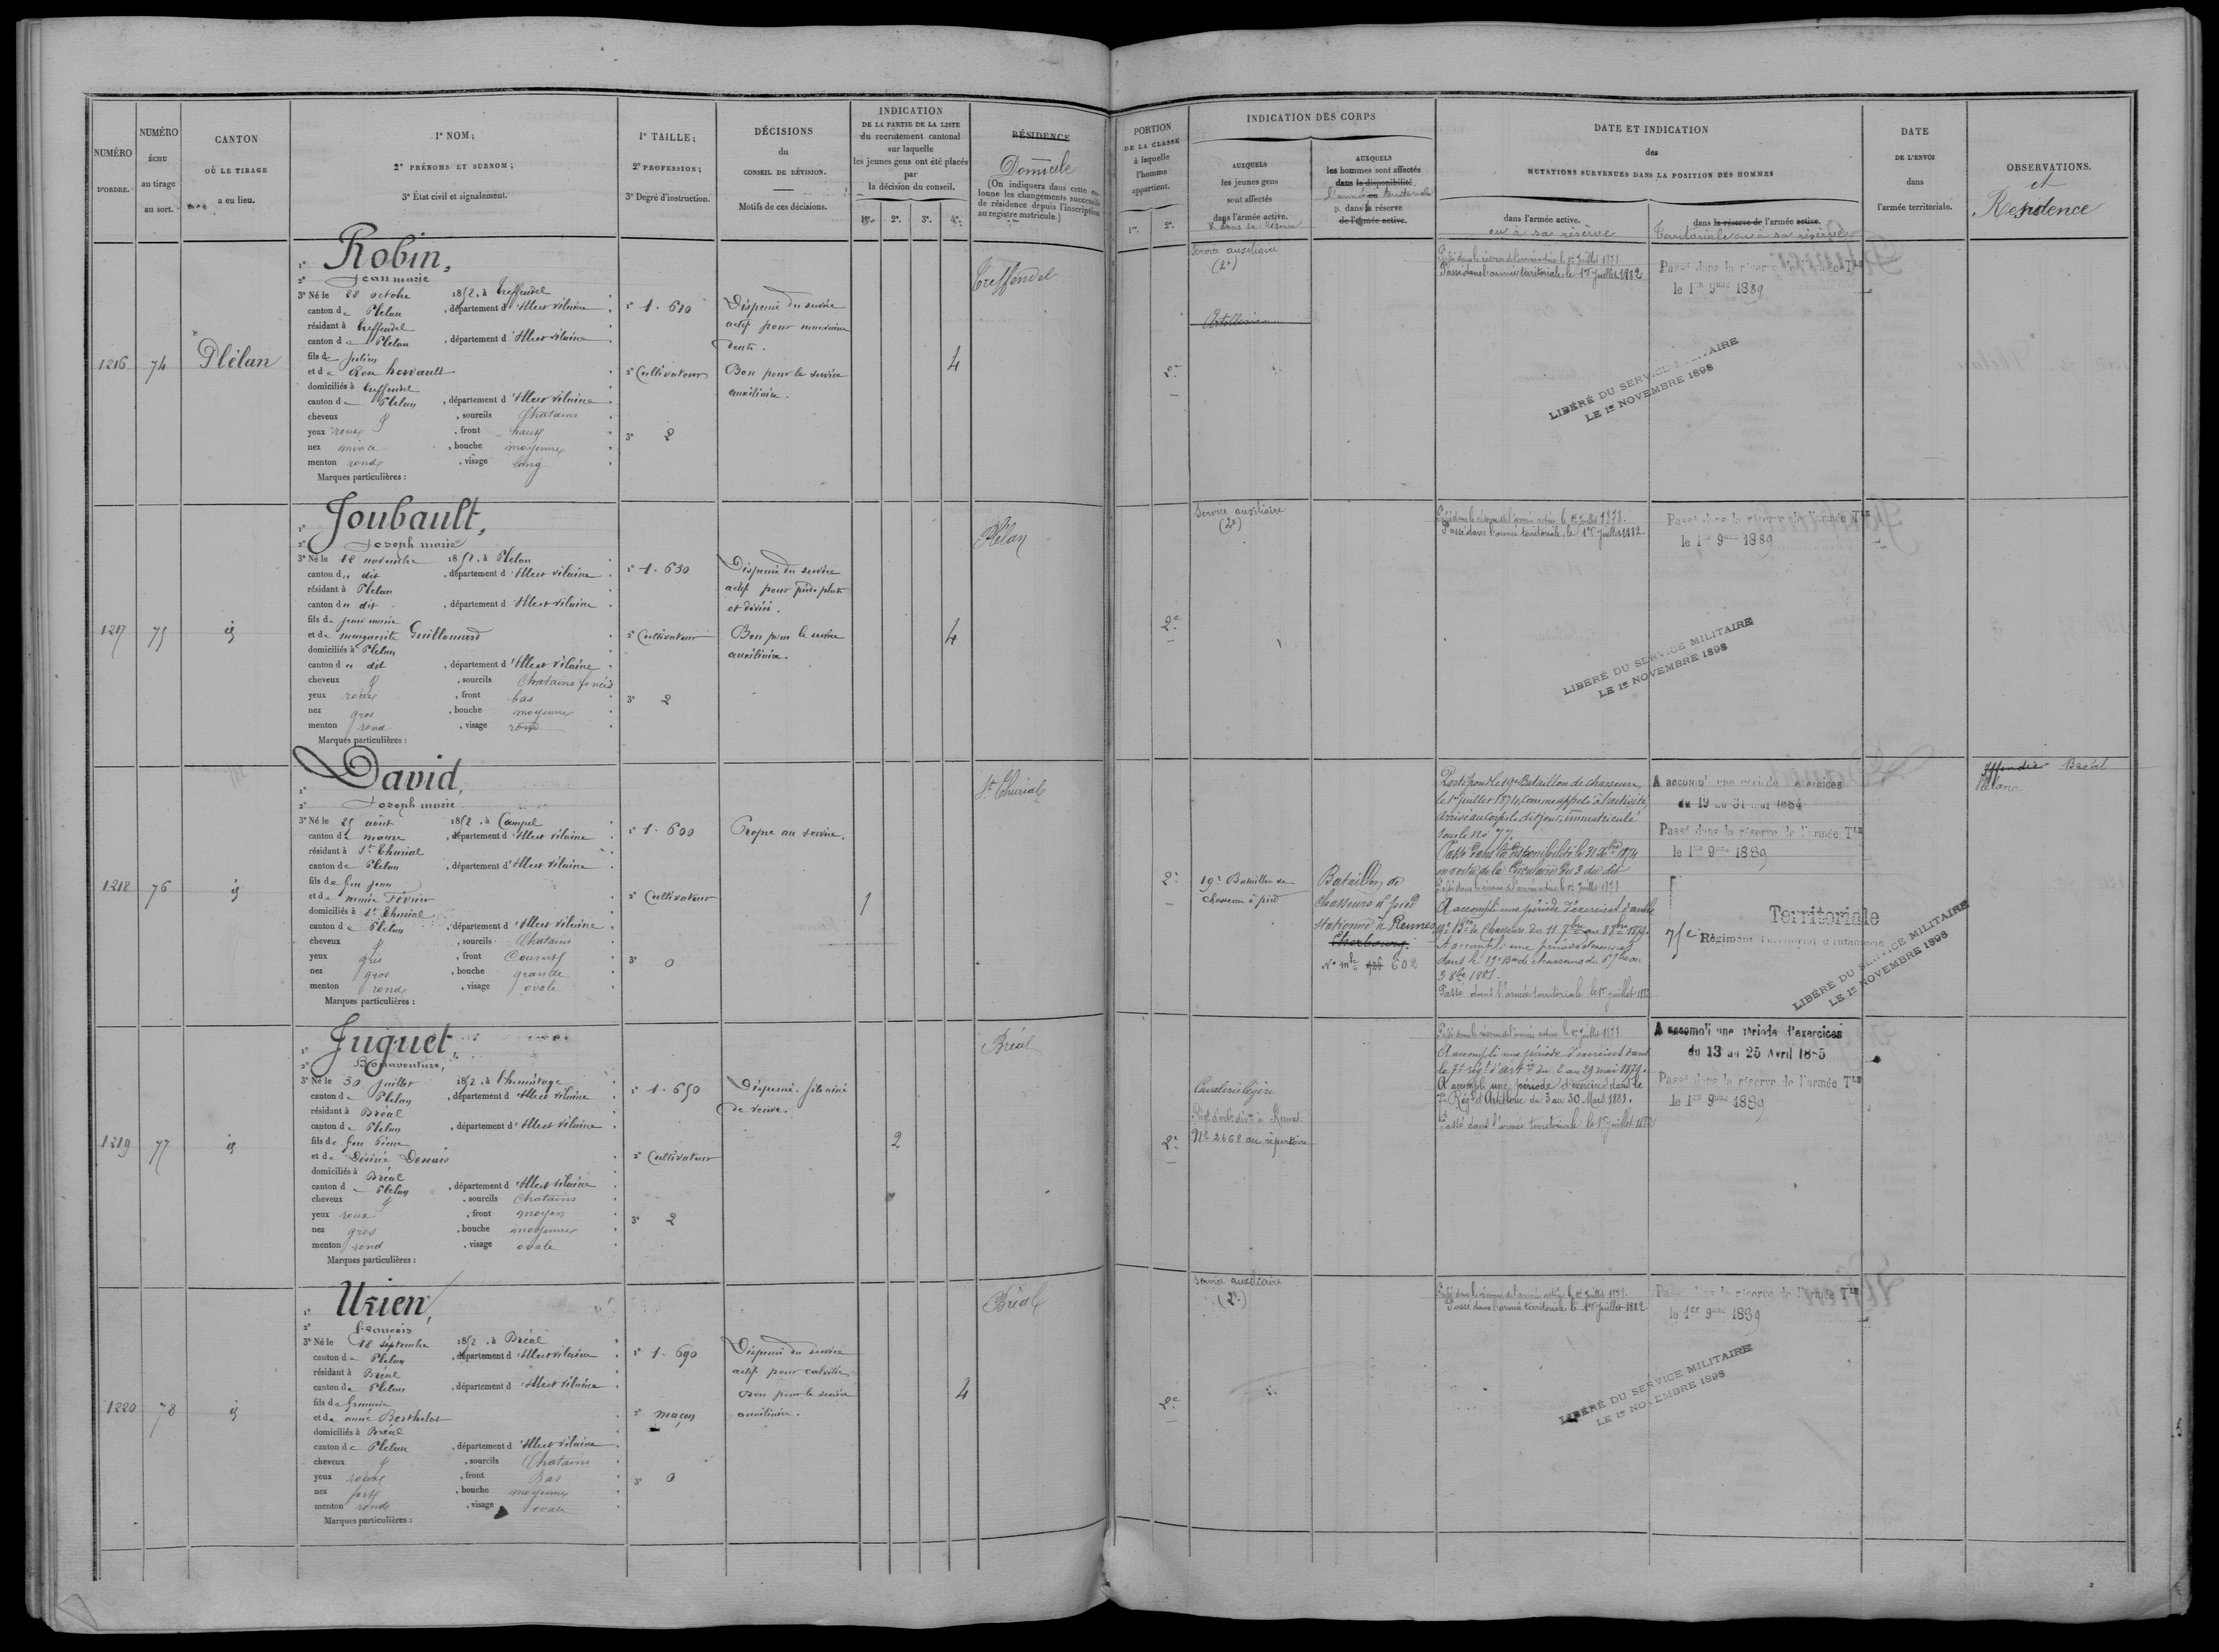 NUMÉRO
D'ORDRE.
NUMÉRO
ÉCHU
au tirage
au sort.
CANTON
OÙ LE TIRAGE
a eu lieu.
1º NOM;
2º PRÉNOMS ET SURNOM;
3º État civil et signalement.
1º TAILLE;
2º PROFESSION;
3º Degré d'instruction.
DÉCISIONS
du
CONSEIL DE RÉVISION.
Motifs de ces décisions.
INDICATION
DE LA PARTIE DE LA LISTE
du recrutement cantonal
sur laquelle
les jeunes gens ont été placés
par
la décision du conseil.
1re. 2e. 3e. 4e.
RÉSIDENCE
Domicile
(On indiquera dans cette co-
lonne les changements successifs
de résidence depuis l'inscription
au registre matricule.)
PORTION
DE LA CLASSE
à laquelle
l'homme
appartient.
1re. 2e.
INDICATION DES CORPS
AUXQUELS
les jeunes gens
sont affectés
dans l'armée active.
AUXQUELS
les hommes sont affectés
dans la disponibilité
l'armée territoriale
dans la réserve
de l'armée active.
DATE ET INDICATION
des
MUTATIONS SURVENUES DANS LA POSITION DES HOMMES
dans l'armée active.
ou à sa réserve
dans la réserve de l'armée active.
territoriale ou à sa réserve
DATE
DE L'ENVOI
dans
l'armée territoriale.
OBSERVATIONS.
et
Résidence
1216
74
Plélan
1º Robin,
2º Jean marie
3º Né le 28 octobre 1852, à Treffendel
canton de Plelan, département d'Ille et vilaine
résidant à Treffendel
canton de Plelan, département d'Ille et vilaine
fils de Julien
et de
domiciliés à Treffendel
canton de Plelan, département d'Ille et vilaine
cheveux, sourcils Chatains
yeux roux, front haut
nez mince, bouche moyenne
menton rond, visage long
Marques particulières :
1º 1.610
2º Cultivateur
3º 2
Dispensé du service
actif pour mauvaise
denti.
Bon pour le service
auxiliaire.
4
Treffendel
2e
Service auxiliaire
(2e)
Artillerie
Passé dans la réserve de l'armée active le 1er Juillet 1878
Passé dans l'armée territoriale le 1er Juillet 1882
Passé dans la réserve de l'armée Tle
le 1er 9bre 1889
LIBÉRÉ DU SERVICE MILITAIRE
LE 1er NOVEMBRE 1898
1217
75
id
1º Joubault,
2º Joseph marie
3º Né le 18 novembre 1852, à Plelan
canton du dit, département d'Ille et vilaine
résidant à Plelan
canton du dit, département d'Ille et vilaine
fils de jean marie
et de marguerite Guillemard
domiciliés à Plelan
canton du dit, département d'Ille et vilaine
cheveux, sourcils Chatains foncés
yeux roux, front bas
nez gros, bouche moyenne
menton rond, visage rond
Marques particulières :
1º 1.630
2º Cultivateur
3º 2
Dispensé du service
actif pour pieds plats
et déviés.
Bon pour le service
auxiliaire.
4
Plélan
2e
Service auxiliaire
(2e)
Passé dans la réserve de l'armée active le 1er Juillet 1878.
Passé dans l'armée territoriale, le 1er Juillet 1882
Passé dans la réserve de l'armée Tle
le 1er 9bre 1889
LIBÉRÉ DU SERVICE MILITAIRE
LE 1er NOVEMBRE 1898
1218
76
id
1º David,
2º Joseph marie
3º Né le 25 août 1852, à Campel
canton de maure, département d'Ille et vilaine
résidant à St Thurial
canton de Plelan, département d'Ille et vilaine
fils de feu jean
et de marie Février
domiciliés à St Thurial
canton de Plelan, département d'Ille et vilaine
cheveux, sourcils Chatains
yeux gris, front Couvert
nez gros, bouche grande
menton rond, visage ovale
Marques particulières :
1º 1.600
2º Cultivateur
3º 0
Propre au service.
1
St Thurial
2e
19e Bataillon de
chasseurs à pied
Bataillon de
Chasseurs à pied
stationné à Rennes
Cherbourg.
No mle 602
Parti pour le 19e Bataillon de chasseurs,
le 1er juillet 1874, comme appelé à l'activité,
Arrivé au Corps le dit jour, immatriculé
sous le No 77.
Passé dans la disponibilité le 31 Xbre 1874
en vertu de la Circulaire du 3 du dit
Passé dans la réserve de l'armée active le 1er Juillet 1878
A accompli une période d'exercices dans le
19e Bon de Chasseurs du 11 7bre au 8 8bre 1879.
A accompli une période d'exercices
dans le 19e Bon de chasseurs du 6 7bre au
3 8bre 1881.
Passé dans l'armée territoriale le 1er juillet 1882
A accompli une période d'exercices
du 19 au 31 Mai 1884
Passé dans la réserve de l'armée Tle
le 1er 9bre 1889
Territoriale
75e Régiment Territorial d'Infanterie
LIBÉRÉ DU SERVICE MILITAIRE
LE 1er NOVEMBRE 1898
Bréal
1219
77
id
1º Juguet,
2º Bonaventure,
3º Né le 30 juillet 1852, à l'hermitage
canton de Plelan, département d'Ille et vilaine
résidant à Bréal
canton de Plelan, département d'Ille et vilaine
fils de feu Pierre
et de Désirée Denais
domiciliés à Bréal
canton de Plelan, département d'Ille et vilaine
cheveux, sourcils Chatains
yeux roux, front moyen
nez gros, bouche moyenne
menton rond, visage ovale
Marques particulières :
1º 1.650
2º Cultivateur
3º 2
Dispensé. fils ainé
de veuve.
2
Bréal
2e
Cavalerie légère
Rennes
No 2668 au répertoire
Passé dans la réserve de l'armée active le 1er Juillet 1878
A accompli une période d'exercices dans
le 7e régt d'artie du 2 au 29 mai 1879.
A accompli une période d'exercices dans le
7e Régt d'Artillerie du 3 au 30 Mars 1881.
Passé dans l'armée territoriale le 1er juillet 1882
A accompli une période d'exercices
du 13 au 25 Avril 1885
Passé dans la réserve de l'armée Tle
le 1er 9bre 1889
1220
78
id
1º Urien,
2º françois
3º Né le 18 septembre 1852, à Bréal
canton de Plelan, département d'Ille et vilaine
résidant à Bréal
canton de Plelan, département d'Ille et vilaine
fils de
et de anne Berthelot
domiciliés à Bréal
canton de Plelan, département d'Ille et vilaine
cheveux, sourcils Chatains
yeux roux, front Bas
nez fort, bouche moyenne
menton rond, visage ovale
Marques particulières :
1º 1.690
2º maçon
3º 0
Dispensé du service
actif pour calvitie
Bon pour le service
auxiliaire.
4
Bréal
2e
Service auxiliaire
(2e)
Passé dans la réserve de l'armée active le 1er Juillet 1878
Passé dans l'armée territoriale le 1er Juillet 1882
Passé dans la réserve de l'armée Tle
le 1er 9bre 1889
LIBÉRÉ DU SERVICE MILITAIRE
LE 1er NOVEMBRE 1898